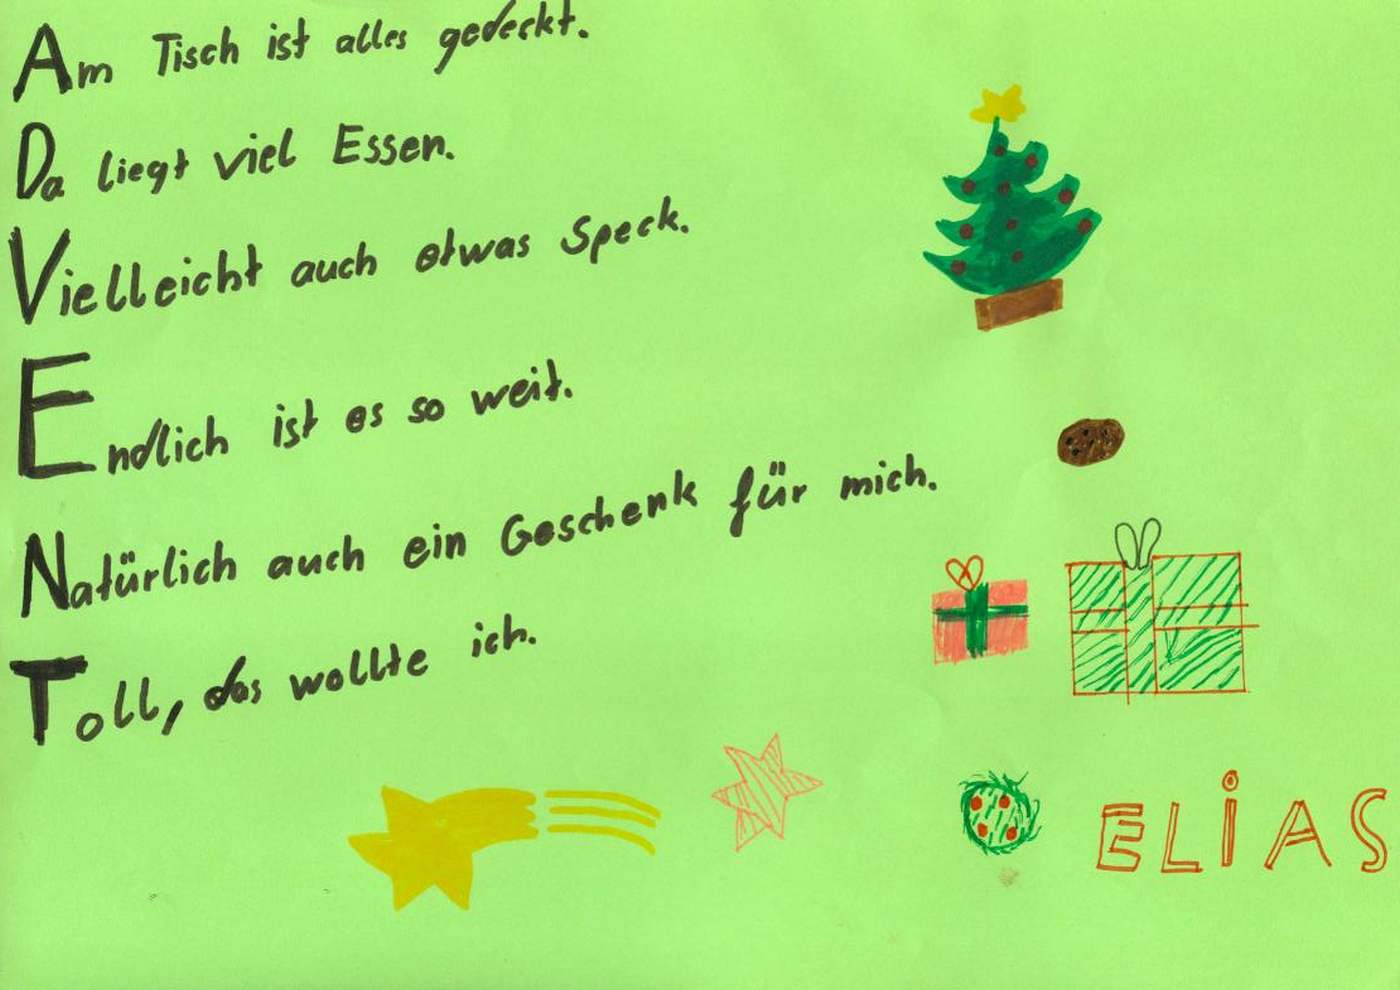 Am Tisch ist alles gedeckt.
Da liegt viel Essen.
Vielleicht auch etwas Speck.
Endlich ist es so weit.
Natürlich auch ein Geschenk für mich.
Toll, das wollte ich.
ELiAS